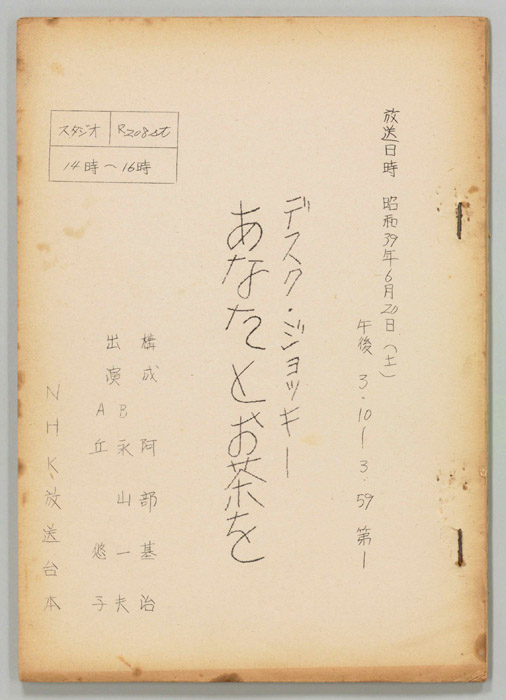 放送日時 昭和39年6月20日(土)
午後 3.10ー3.59 第1
デスク・ジョッキー
あなたとお茶を
スタジオ R208st
14時〜16時
構成 阿部基治
出演 B 永山一夫
A 丘 悠子
NHK放送台本